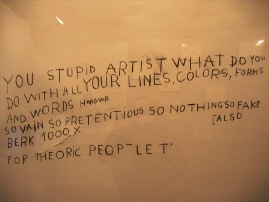 YOU STUPID ARTIST WHAT DO YOU
DO WITH ALL YOUR LINES, COLORS, FORMS
AND WORDS
SO VAIN SO PRETENTIOUS SO NOTHING SO FAKE
BERK 1000 X [ALSO
FOR THEORIC